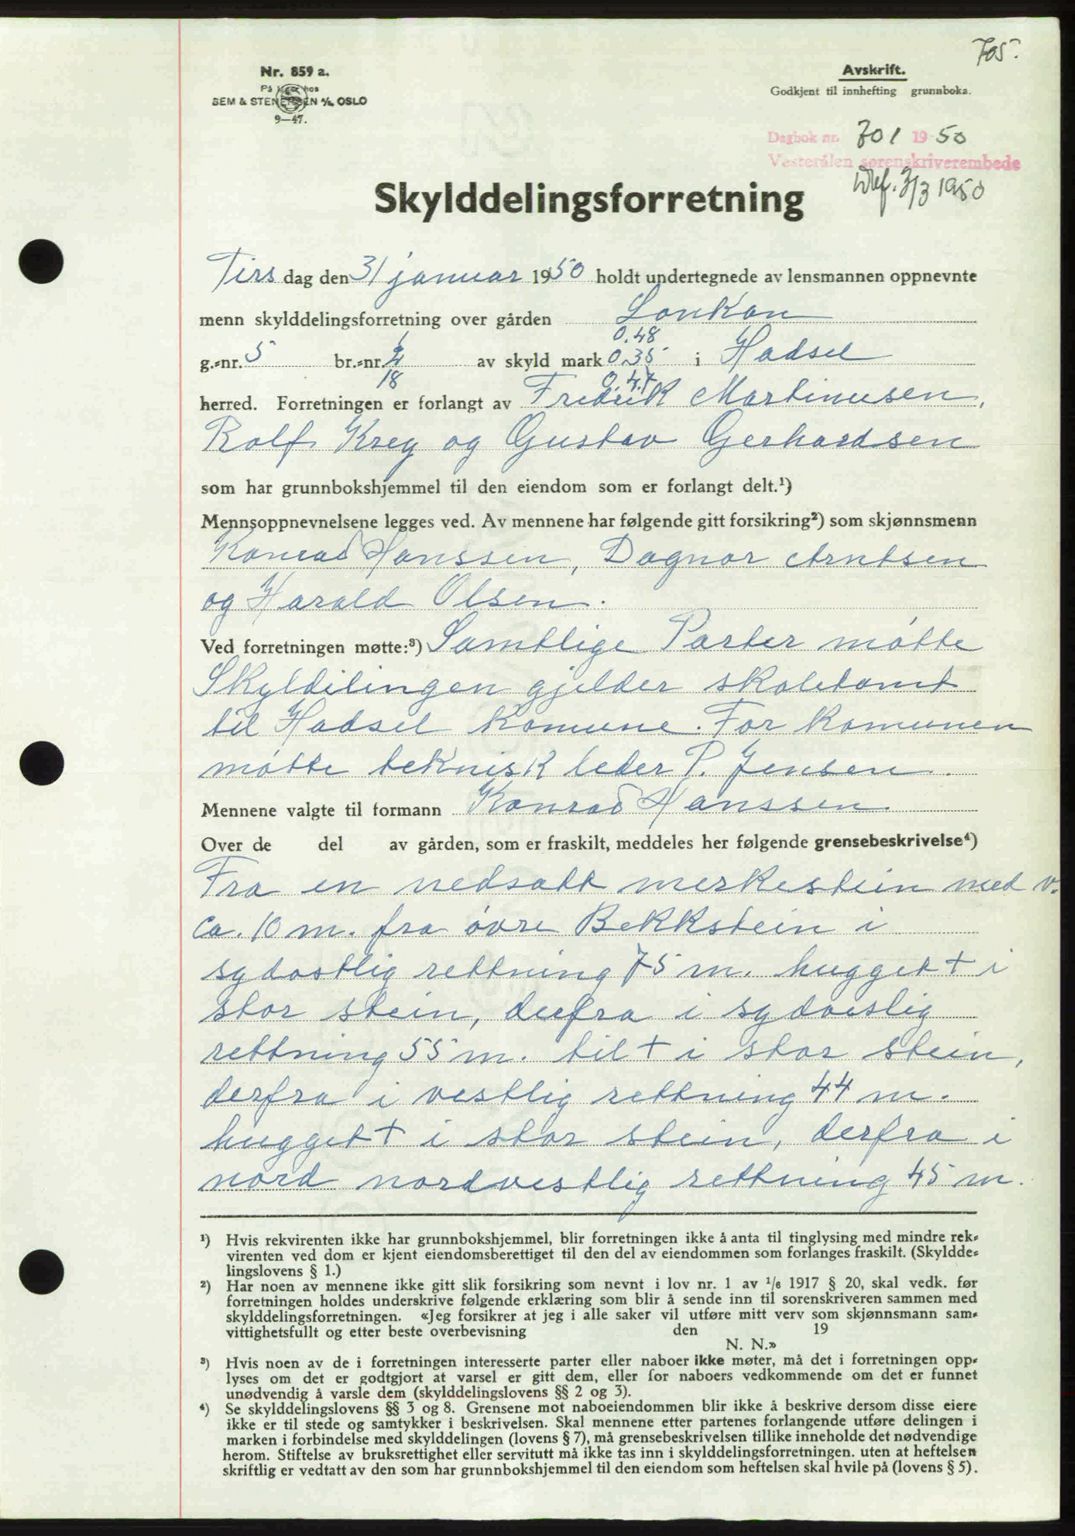 705.
Nr. 859 a.
På lager hos
SEM & STENERSEN A/S, OSLO
9—47.
Avskrift.
Godkjent til innhefting grunnboka.
Dagbok nr. 701 1950
Vesterålen sorenskriverembede
3/3 1950
Skylddelingsforretning
Tirsdag den 31 januar 1950 holdt undertegnede av lensmannen oppnevnte
menn skylddelingsforretning over gården Lonkan
0.48
g.-nr. 5 br.-nr. av skyld mark 0.35 i Hadsel
18 0.47
herred. Forretningen er forlangt av Fredrik Martinusen,
Rolf Krey og Gustav Gerhardsen
som har grunnbokshjemmel til den eiendom som er forlangt delt.¹)
Mennsoppnevnelsene legges ved. Av mennene har følgende gitt forsikring²) som skjønnsmenn
Konrad Hanssen, Dagnar Arntsen
og Harald Olsen.
Ved forretningen møtte:³) Samtlige Parter møtte
Skyldilingen gjelder skoletomt
til Hadsel Komune. For Komunen
møtte teknisk leder P. Jensen.
Mennene valgte til formann Konrad Hanssen
Over de del av gården, som er fraskilt, meddeles her følgende grensebeskrivelse⁴)
Fra en nedsatt merkestein med v.
ca. 10 m. fra øvre Bekkstein i
sydøstlig rettning 75 m. hugget + i
stor stein, derfra i sydvestlig
rettning 55 m. til + i stor stein,
derfra i vestlig rettning 44 m.
hugget + i stor stein, derfra i
nord nordvestlig rettning 45 m.
¹) Hvis rekvirenten ikke har grunnbokshjemmel, blir forretningen ikke å anta til tinglysing med mindre rek-
virenten ved dom er kjent eiendomsberettiget til den del av eiendommen som forlanges fraskilt. (Skyldde-
lingslovens § 1.)
²) Har noen av mennene ikke gitt slik forsikring som nevnt i lov nr. 1 av 1/6 1917 § 20, skal vedk. før
forretningen holdes underskrive følgende erklæring som blir å sende inn til sorenskriveren sammen med
skylddelingsforretningen. «Jeg forsikrer at jeg i alle saker vil utføre mitt verv som skjønnsmann sam-
vittighetsfullt og etter beste overbevisning den 19
N. N.»
³) Hvis noen av de i forretningen interesserte parter eller naboer ikke møter, må det i forretningen opp-
lyses om det er godtgjort at varsel er gitt dem, eller for naboers vedkommende om det er funnet
unødvendig å varsle dem (skylddelingslovens §§ 2 og 3).
⁴) Se skylddelingslovens §§ 3 og 8. Grensene mot naboeiendommen blir ikke å beskrive dersom disse eiere
ikke er til stede og samtykker i beskrivelsen. Skal mennene etter partenes forlangende utføre delingen i
marken i forbindelse med skylddelingen (lovens § 7), må grensebeskrivelsen tillike inneholde det nødvendige
herom. Stiftelse av bruksrettighet eller servitutt må ikke tas inn i skylddelingsforretningen. uten at heftelsen
skriftlig er vedtatt av den som har grunnbokshjemmel til den eiendom som heftelsen skal hvile på (lovens § 5).